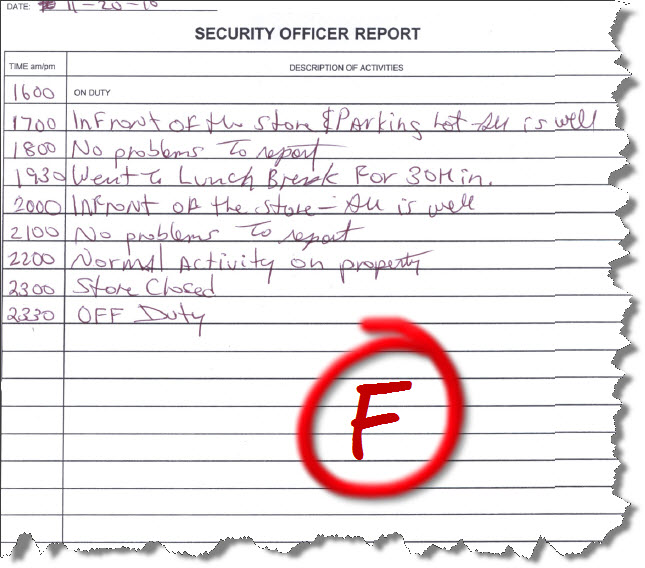 DATE: 11-20-10
SECURITY OFFICER REPORT
TIME am/pm DESCRIPTION OF ACTIVITIES
1600 ON DUTY
1700 InFront OF the Store & PArking Lot - All is well
1800 No problems To report
1930 Went To Lunch Break For 30Min.
2000 InFront OF the Store - All is well
2100 No problems To report
2200 Normal Activity on property
2300 Store Closed
2330 OFF Duty
F